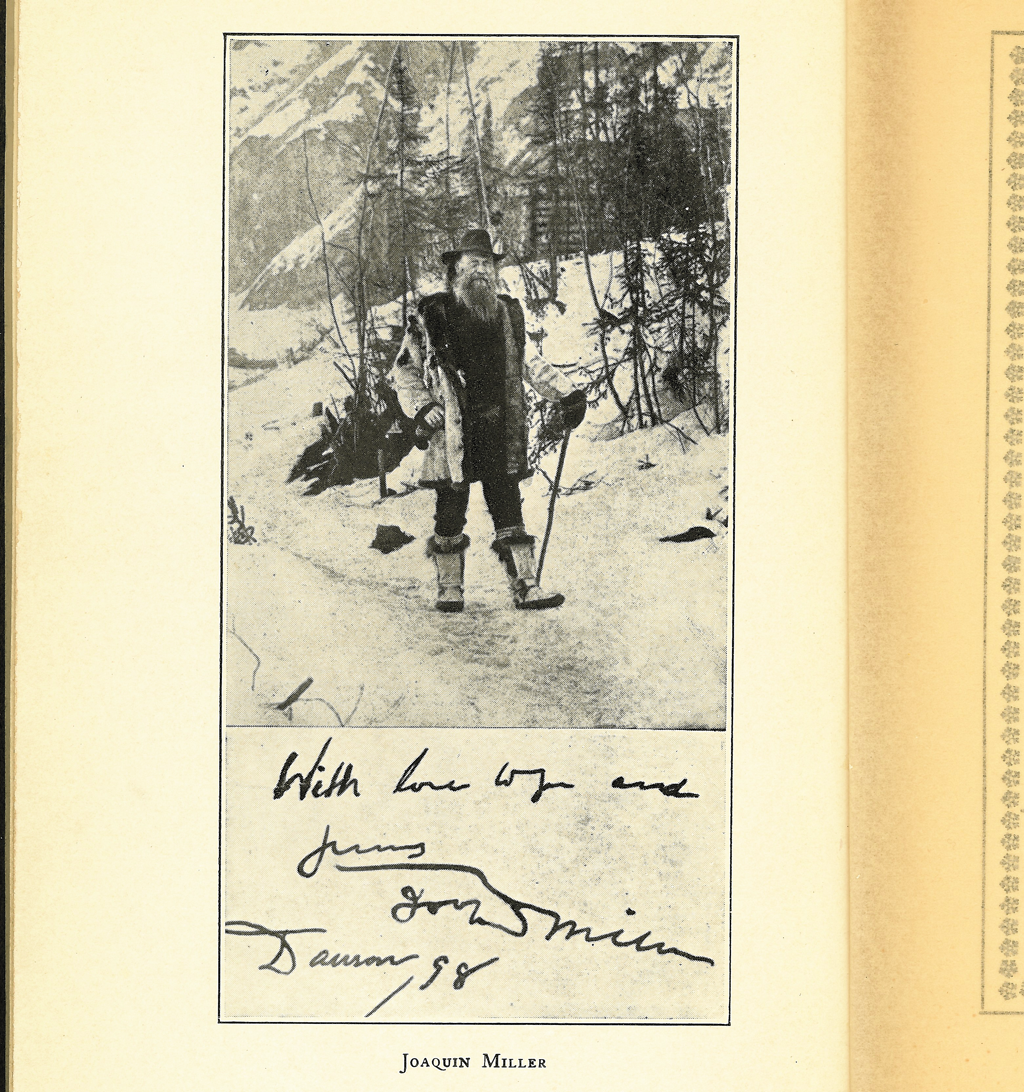 With love                and
Joaquin Miller
Dawson, 98
JOAQUIN MILLER